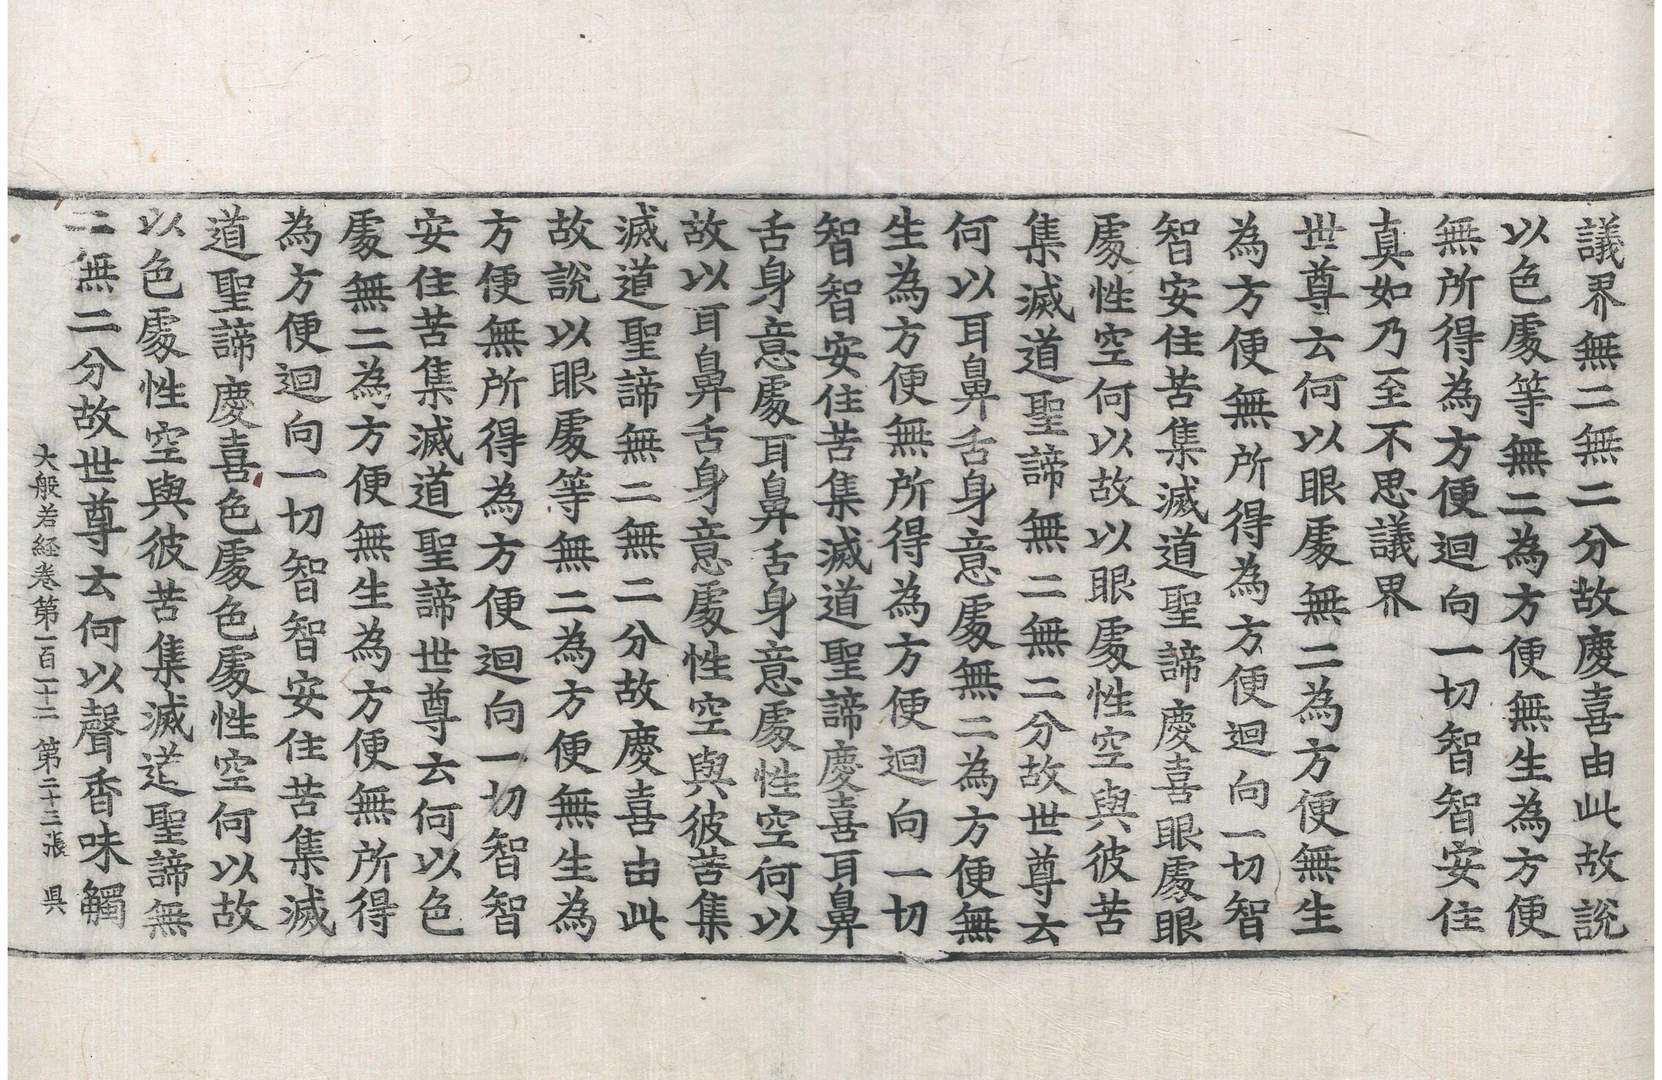 議界無二無二分故慶喜由此故說
以色處等無二為方便無生為方便
無所得為方便迴向一切智智安住
真如乃至不思議界
世尊云何以眼處無二為方便無生
為方便無所得為方便迴向一切智
智安住苦集滅道聖諦慶喜眼處眼
處性空何以故以眼處性空與彼苦
集滅道聖諦無二無二分故世尊云
何以耳鼻舌身意處無二為方便無
生為方便無所得為方便迴向一切
智智安住苦集滅道聖諦慶喜耳鼻
舌身意處耳鼻舌身意處性空何以
故以耳鼻舌身意處性空與彼苦集
滅道聖諦無二無二分故慶喜由此
故說以眼處等無二為方便無生為
方便無所得為方便迴向一切智智
安住苦集滅道聖諦世尊云何以色
處無二為方便無生為方便無所得
為方便迴向一切智智安住苦集滅
道聖諦慶喜色處色處性空何以故
以色處性空與彼苦集滅道聖諦無
二無二分故世尊云何以聲香味觸
大般若経卷第一百一十二 第二十三張 吳